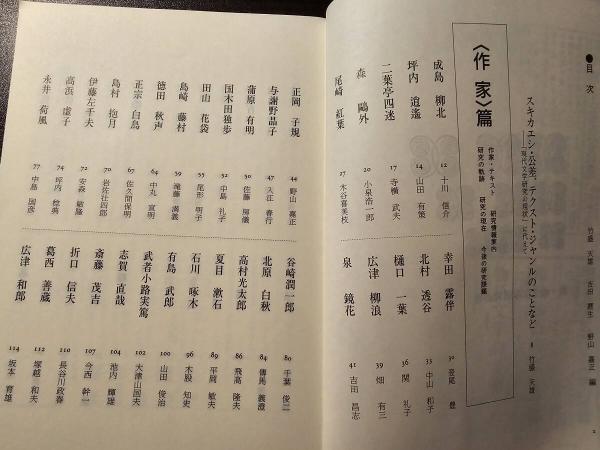 ●目次
竹盛天雄 吉田凞生 野山嘉正 編
スキカエシ・公差・テクスト・ジャンルのことなど 8 竹盛天雄
―「現代文学研究の現状」に代えて
〈作家〉篇
作家・テキスト 研究情報案内
研究の軌跡 研究の現在 今後の研究課題
成島柳北 12 十川信介
坪内逍遙 14 山田有策
二葉亭四迷 17 寺横武夫
森鷗外 20 小泉浩一郎
尾崎紅葉 27 木谷喜美枝
幸田露伴 30 登尾豊
北村透谷 33 中山和子
樋口一葉 36 関礼子
広津柳浪 39 畑有三
泉鏡花 41 吉田昌志
正岡子規 44 野山嘉正
与謝野晶子 47 入江春行
蒲原有明 50 佐藤房儀
国木田独歩 52 中島礼子
田山花袋 55 尾形明子
島崎藤村 59 滝藤満義
徳田秋声 64 中丸宣明
正宗白鳥 67 佐久間保明
島村抱月 70 岩佐壮四郎
伊藤左千夫 72 安森敏隆
高浜虚子 74 坪内稔典
永井荷風 77 中島国彦
谷崎潤一郎 80 千葉俊二
北原白秋 84 傳馬義澄
高村光太郎 86 飛高隆夫
夏目漱石 89 平岡敏夫
石川啄木 96 木股知史
有島武郎 100 山田俊治
武者小路実篤 102 大津山国夫
志賀直哉 104 池内輝雄
斎藤茂吉 107 今西幹一
折口信夫 110 長谷川政春
葛西善蔵 112 塚越和夫
広津和郎 114 坂本育雄
2